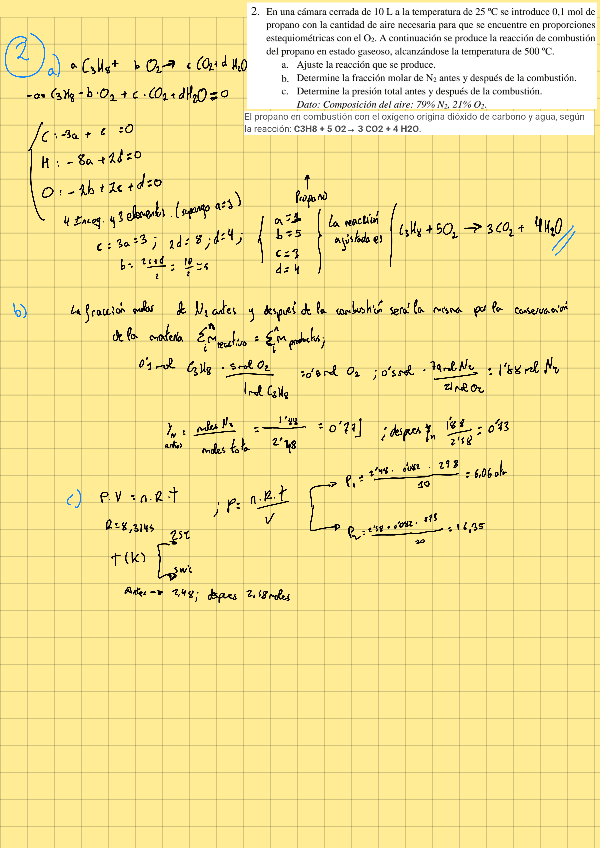 2. En una cámara cerrada de 10 L a la temperatura de 25 ºC se introduce 0,1 mol de
propano con la cantidad de aire necesaria para que se encuentre en proporciones
estequiométricas con el O₂. A continuación se produce la reacción de combustión
del propano en estado gaseoso, alcanzándose la temperatura de 500 ºC.
a. Ajuste la reacción que se produce.
b. Determine la fracción molar de N₂ antes y después de la combustión.
c. Determine la presión total antes y después de la combustión.
Dato: Composición del aire: 79% N₂, 21% O₂.
El propano en combustión con el oxígeno origina dióxido de carbono y agua, según
la reacción: C3H8 + 5 O2→ 3 CO2 + 4 H2O.
2
a) a C₃H₈ + b O₂ → c CO₂ + d H₂O
-a · C₃H₈ - b · O₂ + c · CO₂ + d H₂O = 0
C: -3a + c = 0
H: -8a + 2d = 0
O: -2b + 2c + d = 0
4 Incog. y 3 elementos. (supongo a=1)
c = 3a = 3; 2d = 8; d = 4;
b = 2c+d / 2 = 10 / 2 = 5
Propano
a = 1
b = 5
c = 3
d = 4
La reacción
ajustada es
C₃H₈ + 5O₂ → 3CO₂ + 4H₂O
b) La fracción molar de N₂ antes y después de la combustión será la misma por la conservación
de la materia Σm reactivo = Σm productos;
0'1 mol C₃H₈ · 5 mol O₂ / 1 mol C₃H₈ = 0'5 mol O₂ ; 0'5 mol · 79 mol N₂ / 21 mol O₂ = 1'88 mol N₂
antes = moles N₂ / moles tota = 1'88 / 2'48 = 0'77 ; despues 1'88 / 2'58 = 0'73
c) P.V = n.R.t ; P = n.R.t / V
P₁ = 2'48 · 0'082 · 298 / 10 = 6,06 atm
R = 8,3145
T (K) 25ºC
500ºC
P₂ = 2'58 · 0'082 · 773 / 10 = 16,35
Antes → 2,48; despues 2,58 moles